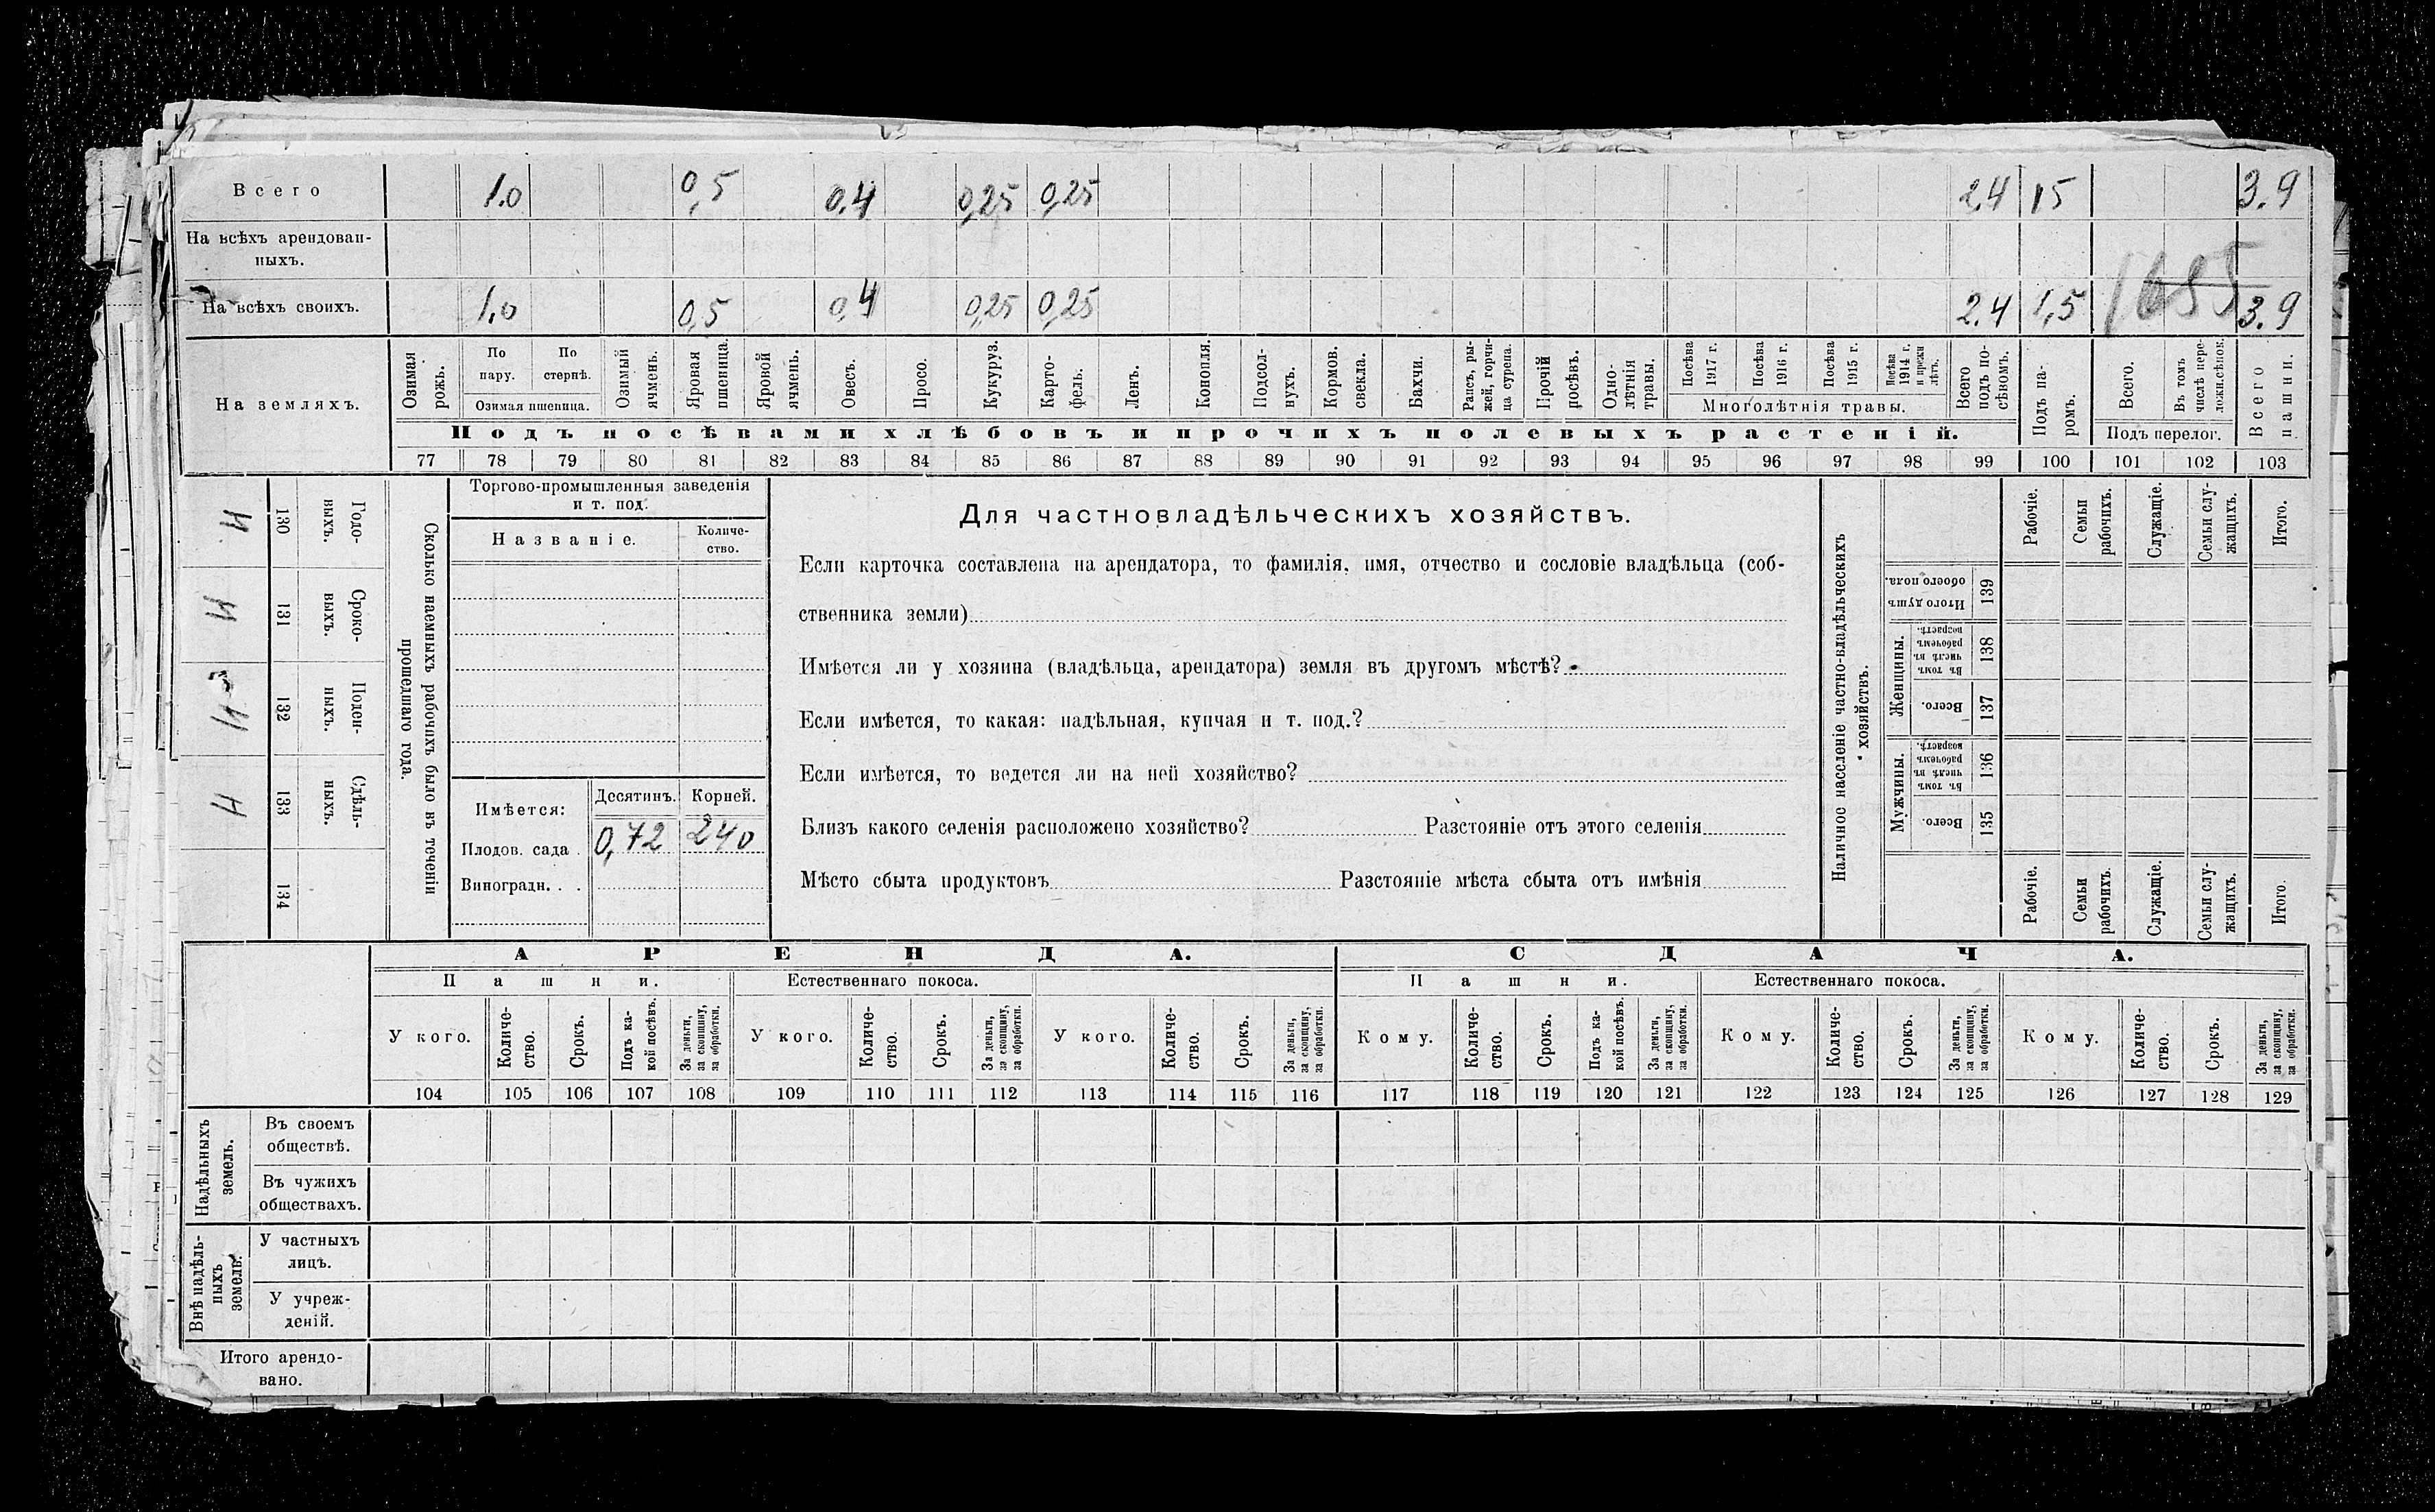 Всего 1.0 0,5 0,4 0,25 0,25 2,4 15 3.9
На всѣхъ арендован-
ныхъ.
На всѣхъ своихъ. 1.0 0,5 0,4 0,25 0,25 2.4 1,5 3.9
1685
На земляхъ.
Озимая рожь.
По пару.
По стернѣ.
Озимая пшеница.
Озимый ячмень.
Яровая пшеница.
Яровой ячмень.
Овесъ.
Просо.
Кукуруз.
Карто-
фель.
Ленъ.
Конопля.
Подсол-
нухъ.
Кормов.
свекла.
Бахчи.
Рапсъ, ры-
жей, горчи-
ца сурепа.
Прочій
посѣвъ.
Одно-
лѣтнія
травы.
Посѣва
1917 г.
Посѣва
1916 г.
Посѣва
1915 г.
Посѣва
1914 г.
и прежн
лѣтъ.
Многолѣтнія травы.
Всего
подъ по-
сѣвомъ.
Подъ па-
ромъ.
Всего.
Въ томъ
числѣ пере-
ложн.сѣнок.
Подъ перелог.
Всего
пашни.
Подъ посѣвами хлѣбовъ и прочихъ полевыхъ растеній.
77 78 79 80 81 82 83 84 85 86 87 88 89 90 91 92 93 94 95 96 97 98 99 100 101 102 103
Н 130 Годо-
выхъ.
Н 131 Сроко-
выхъ.
132 Поден-
ныхъ.
Н 133 Сдѣль-
ныхъ.
134
Сколько наемныхъ рабочихъ было въ теченіи
прошедшаго года.
Торгово-промышленныя заведенія
и т. под.
Названіе.
Количе-
ство.
Имѣется: Десятинъ. Корней.
Плодов. сада . 0,72 240
Виноградн. . .
Для частновладѣльческихъ хозяйствъ.
Если карточка составлена на арендатора, то фамилія, имя, отчество и сословіе владѣльца (соб-
ственника земли)
Имѣется ли у хозяина (владѣльца, арендатора) земля въ другомъ мѣстѣ?
Если имѣется, то какая: надѣльная, купчая и т. под.?
Если имѣется, то ведется ли на ней хозяйство?
Близъ какого селенія расположено хозяйство? Разстояніе отъ этого селенія
Мѣсто сбыта продуктовъ Разстояніе мѣста сбыта отъ имѣнія
Наличное населеніе частно-владѣльческихъ
хозяйствъ.
Рабочіе.
Семьи
рабочихъ.
Служащіе.
Семьи слу-
жащихъ.
Итого.
Итого душъ
обоего пола.
139
Женщины.
Въ томъ
числѣ въ
рабочемъ
возрастѣ.
138
Всего.
137
Мужчины.
Въ томъ
числѣ въ
рабочемъ
возрастѣ.
136
Всего.
135
Рабочіе.
Семьи
рабочихъ.
Служащіе.
Семьи слу-
жащихъ.
Итого.
АРЕНДА. СДАЧА.
Пашни. Естественнаго покоса. Пашни. Естественнаго покоса.
У кого.
Количе-
ство.
Срокъ.
Подъ ка-
кой посѣвъ.
За деньги,
за скопщину,
за обработки.
У кого.
Количе-
ство.
Срокъ.
За деньги,
за скопщину,
за обработки.
У кого.
Количе-
ство.
Срокъ.
За деньги,
за скопщину,
за обработки.
Кому.
Количе-
ство.
Срокъ.
Подъ ка-
кой посѣвъ.
За деньги,
за скопщину,
за обработки.
Кому.
Количе-
ство.
Срокъ.
За деньги,
за скопщину,
за обработки.
Кому.
Количе-
ство.
Срокъ.
За деньги,
за скопщину,
за обработки.
104 105 106 107 108 109 110 111 112 113 114 115 116 117 118 119 120 121 122 123 124 125 126 127 128 129
Надѣльныхъ
земель.
Въ своемъ
обществѣ.
Въ чужихъ
обществахъ.
Внѣ надѣль-
ныхъ
земель.
У частныхъ
лицъ.
У учреж-
деній.
Итого арендо-
вано.